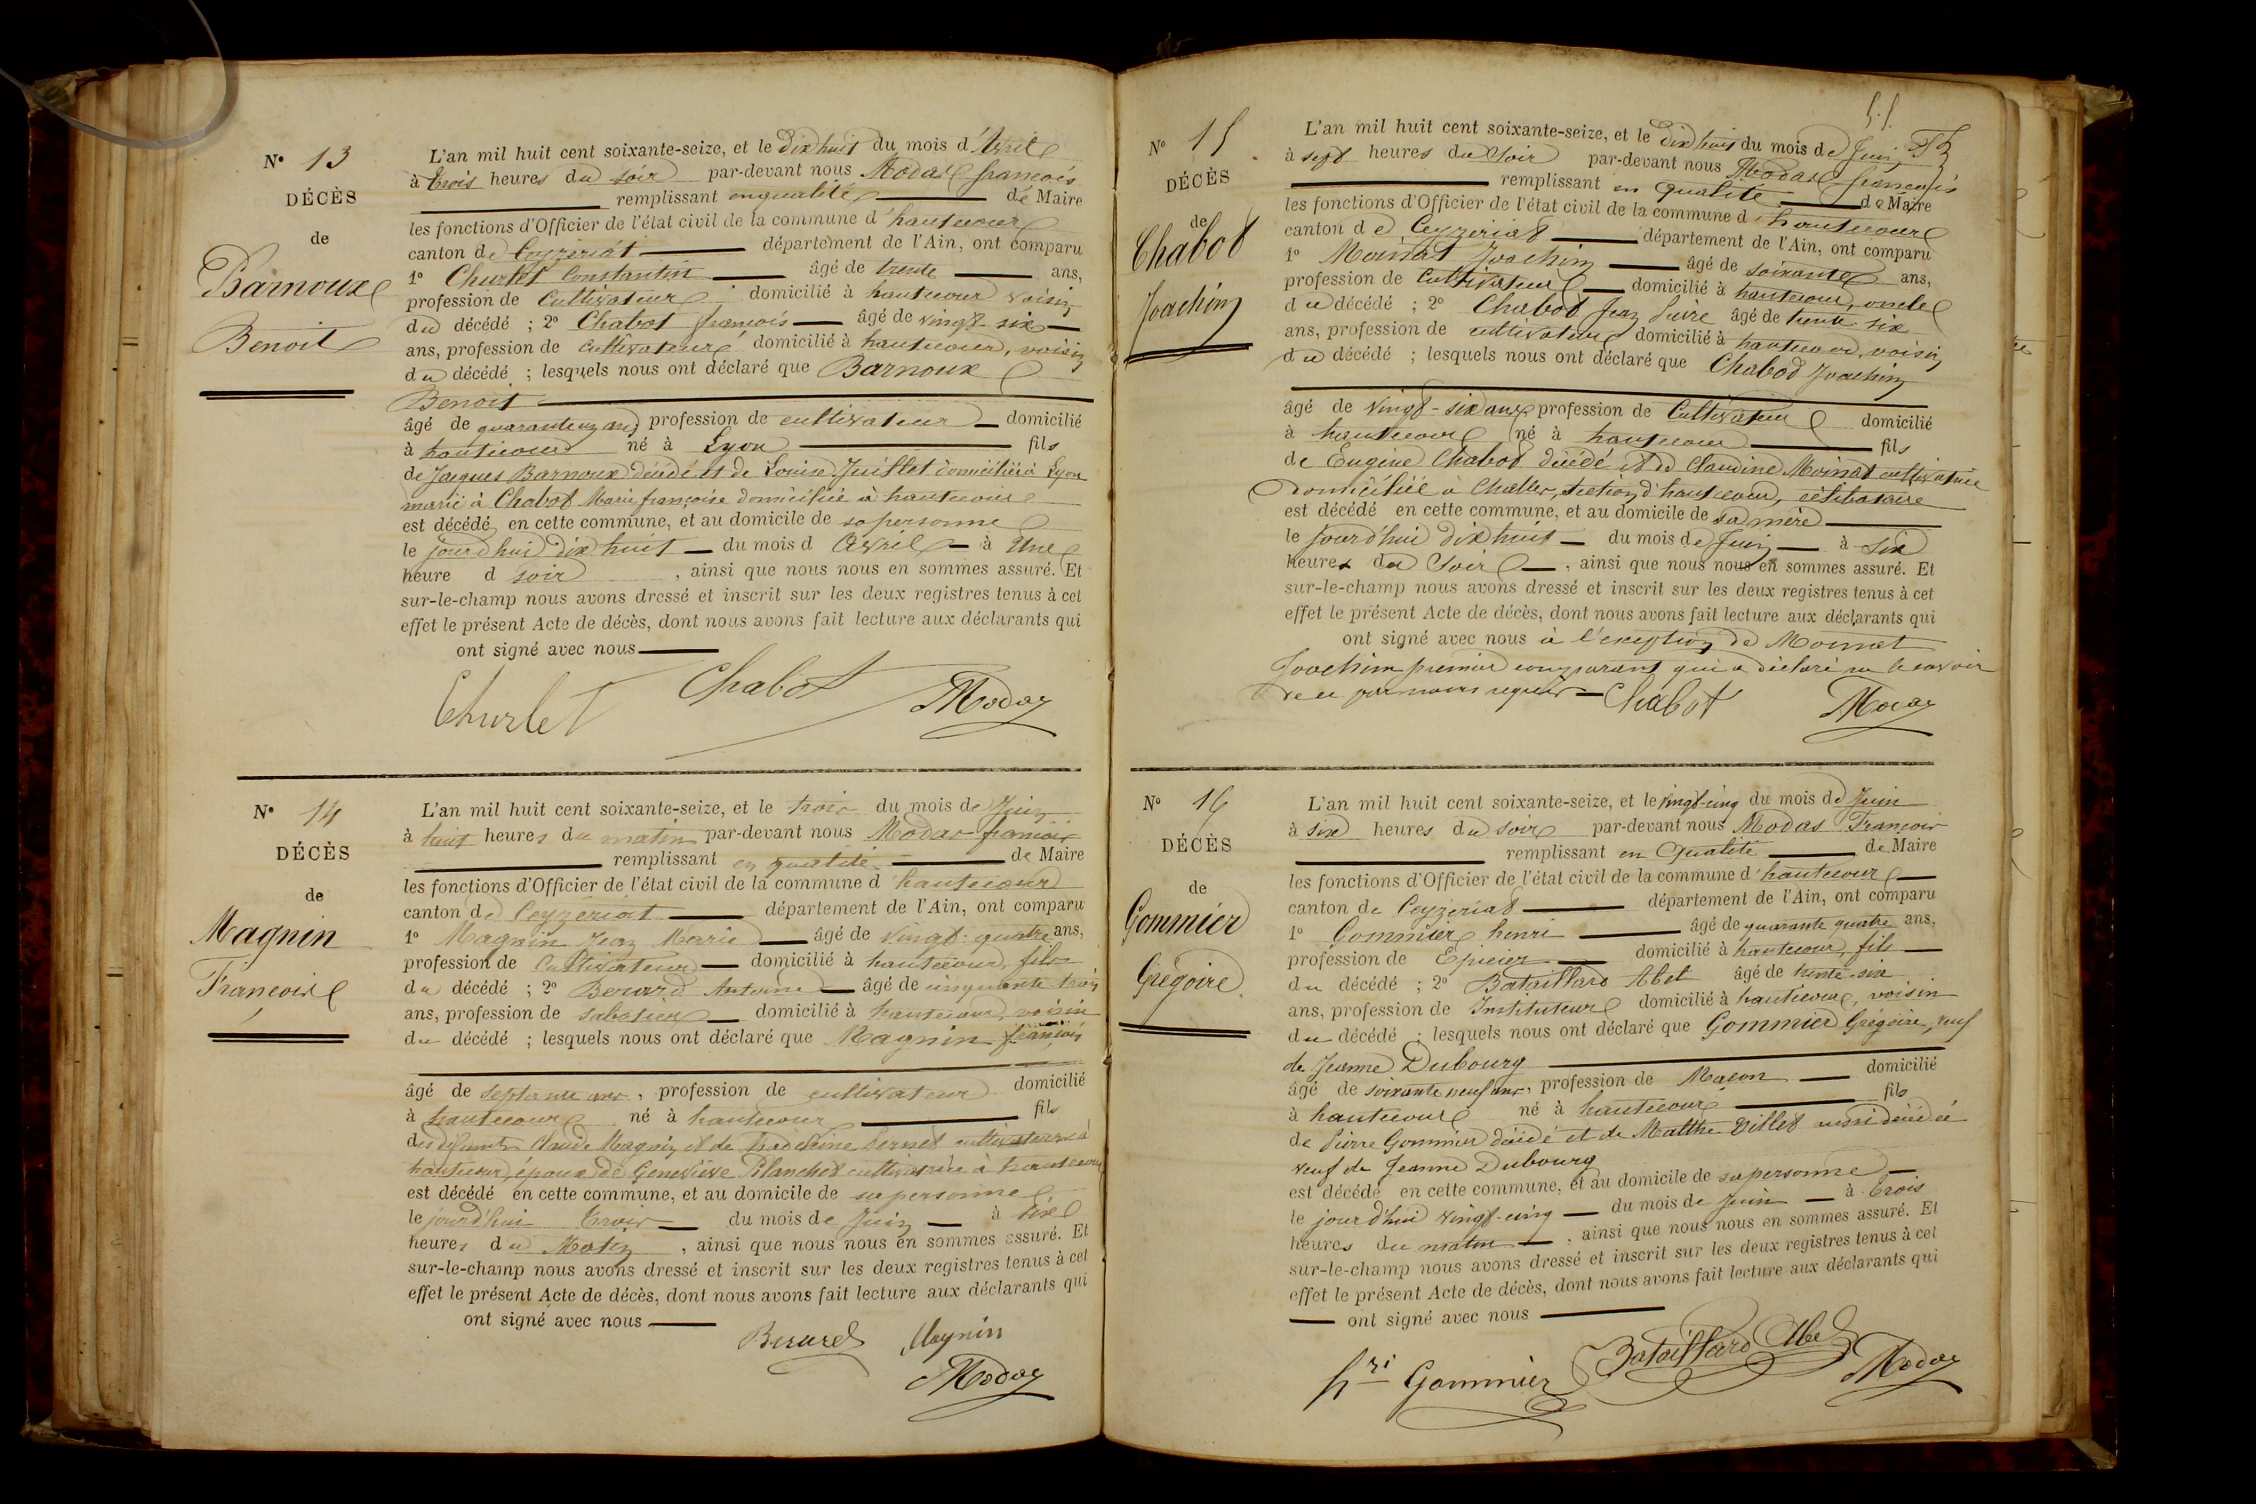 N° 13
DÉCÈS
de
Barnoux
Benoit
L'an mil huit cent soixante-seize, et le dix huit du mois d'Avril
à trois heures du soir par-devant nous Modas françois
remplissant en qualité de Maire
les fonctions d'Officier de l'état civil de la commune d'hautecour
canton de Ceyzériat département de l'Ain, ont comparu
1° Churlet Constantin âgé de trente ans,
profession de Cultivateur domicilié à hautecour voisin
du décédé ; 2° Chabot françois âgé de vingt-six
ans, profession de cultivateur domicilié à hautecour, voisin
du décédé ; lesquels nous ont déclaré que Barnoux
Benoit
âgé de quarante ans profession de cultivateur domicilié
à hautecour né à Lyon fils
de Jacques Barnoux décédé et de Louise Juillet domiciliée à Lyon
marié à Chabot Marie françoise domiciliée à hautecour
est décédé en cette commune, et au domicile de sa personne
le jourd'hui dix huit du mois d Avril à Une
heure d soir , ainsi que nous nous en sommes assuré. Et
sur-le-champ nous avons dressé et inscrit sur les deux registres tenus à cet
effet le présent Acte de décès, dont nous avons fait lecture aux déclarants qui
ont signé avec nous
Churlet Chabot Modas
N° 14
DÉCÈS
de
Magnin
Francois
L'an mil huit cent soixante-seize, et le trois du mois de Juin
à huit heures du matin par-devant nous Modas francois
remplissant en qualité de Maire
les fonctions d'Officier de l'état civil de la commune d'hautecour
canton de Ceyzériat département de l'Ain, ont comparu
1° Magnin Jean Marie âgé de vingt-quatre ans,
profession de Cultivateur domicilié à hautecour, fils
du décédé ; 2° Berard Antoine âgé de cinquante trois
ans, profession de sabotier domicilié à hautecour, voisin
du décédé ; lesquels nous ont déclaré que Magnin françois
âgé de septante ans, profession de cultivateur domicilié
à hautecour né à hautecour fils
des défunts Claude Magnin et de cultivateurs à
hautecour, époux de Geneviève Blanchet cultivatrice à hautecour
est décédé en cette commune, et au domicile de sa personne
le jourd'hui trois du mois de Juin à six
heures du Matin , ainsi que nous nous en sommes assuré. Et
sur-le-champ nous avons dressé et inscrit sur les deux registres tenus à cet
effet le présent Acte de décès, dont nous avons fait lecture aux déclarants qui
ont signé avec nous
Berard Magnin
Modas
N° 15
DÉCÈS
de
Chabot
Joachim
L'an mil huit cent soixante-seize, et le dix huit du mois de Juin
à sept heures du Soir par-devant nous Modas françois
remplissant en qualité de Maire
les fonctions d'Officier de l'état civil de la commune d'hautecour
canton de Ceyzériat département de l'Ain, ont comparu
1° Moinat Joachim âgé de soixante ans,
profession de Cultivateur domicilié à hautecour, oncle
du décédé ; 2° Chabot Jean Pierre âgé de trente-six
ans, profession de cultivateur domicilié à hautecour, voisin
du décédé ; lesquels nous ont déclaré que Chabot Joachim
âgé de vingt-six ans profession de Cultivateur domicilié
à hautecour né à hautecour fils
de Eugène Chabot décédé et de Claudine Moinat cultivatrice
domiciliée à Challes, section d'hautecour, célibataire
est décédé en cette commune, et au domicile de sa mère
le jourd'hui dix huit du mois de Juin à six
heures du Soir , ainsi que nous nous en sommes assuré. Et
sur-le-champ nous avons dressé et inscrit sur les deux registres tenus à cet
effet le présent Acte de décès, dont nous avons fait lecture aux déclarants qui
ont signé avec nous à l'exception de Moinat
Joachim premier comparant qui a déclaré ne le savoir
de ce par nous requis Chabot Modas
N° 16
DÉCÈS
de
Gommier
Grégoire
L'an mil huit cent soixante-seize, et le vingt-cinq du mois de Juin
à six heures du soir par-devant nous Modas François
remplissant en Qualité de Maire
les fonctions d'Officier de l'état civil de la commune d'hautecour
canton de Ceyzériat département de l'Ain, ont comparu
1° Gommier henri âgé de quarante quatre ans,
profession de Epicier domicilié à hautecour, fils
du décédé ; 2° Bataillard Abel âgé de trente-six
ans, profession de Instituteur domicilié à hautecour, voisin
du décédé ; lesquels nous ont déclaré que Gommier Grégoire, veuf
de Jeanne Dubourg
âgé de soixante neuf ans, profession de Maçon domicilié
à hautecour né à hautecour fils
de Pierre Gommier décédé et de Matthe Villet aussi décédée
veuf de Jeanne Dubourg
est décédé en cette commune, et au domicile de sa personne
le jourd'hui vingt-cinq du mois de Juin à trois
heures du matin , ainsi que nous nous en sommes assuré. Et
sur-le-champ nous avons dressé et inscrit sur les deux registres tenus à cet
effet le présent Acte de décès, dont nous avons fait lecture aux déclarants qui
ont signé avec nous
hri Gommier Bataillard Abel Modas